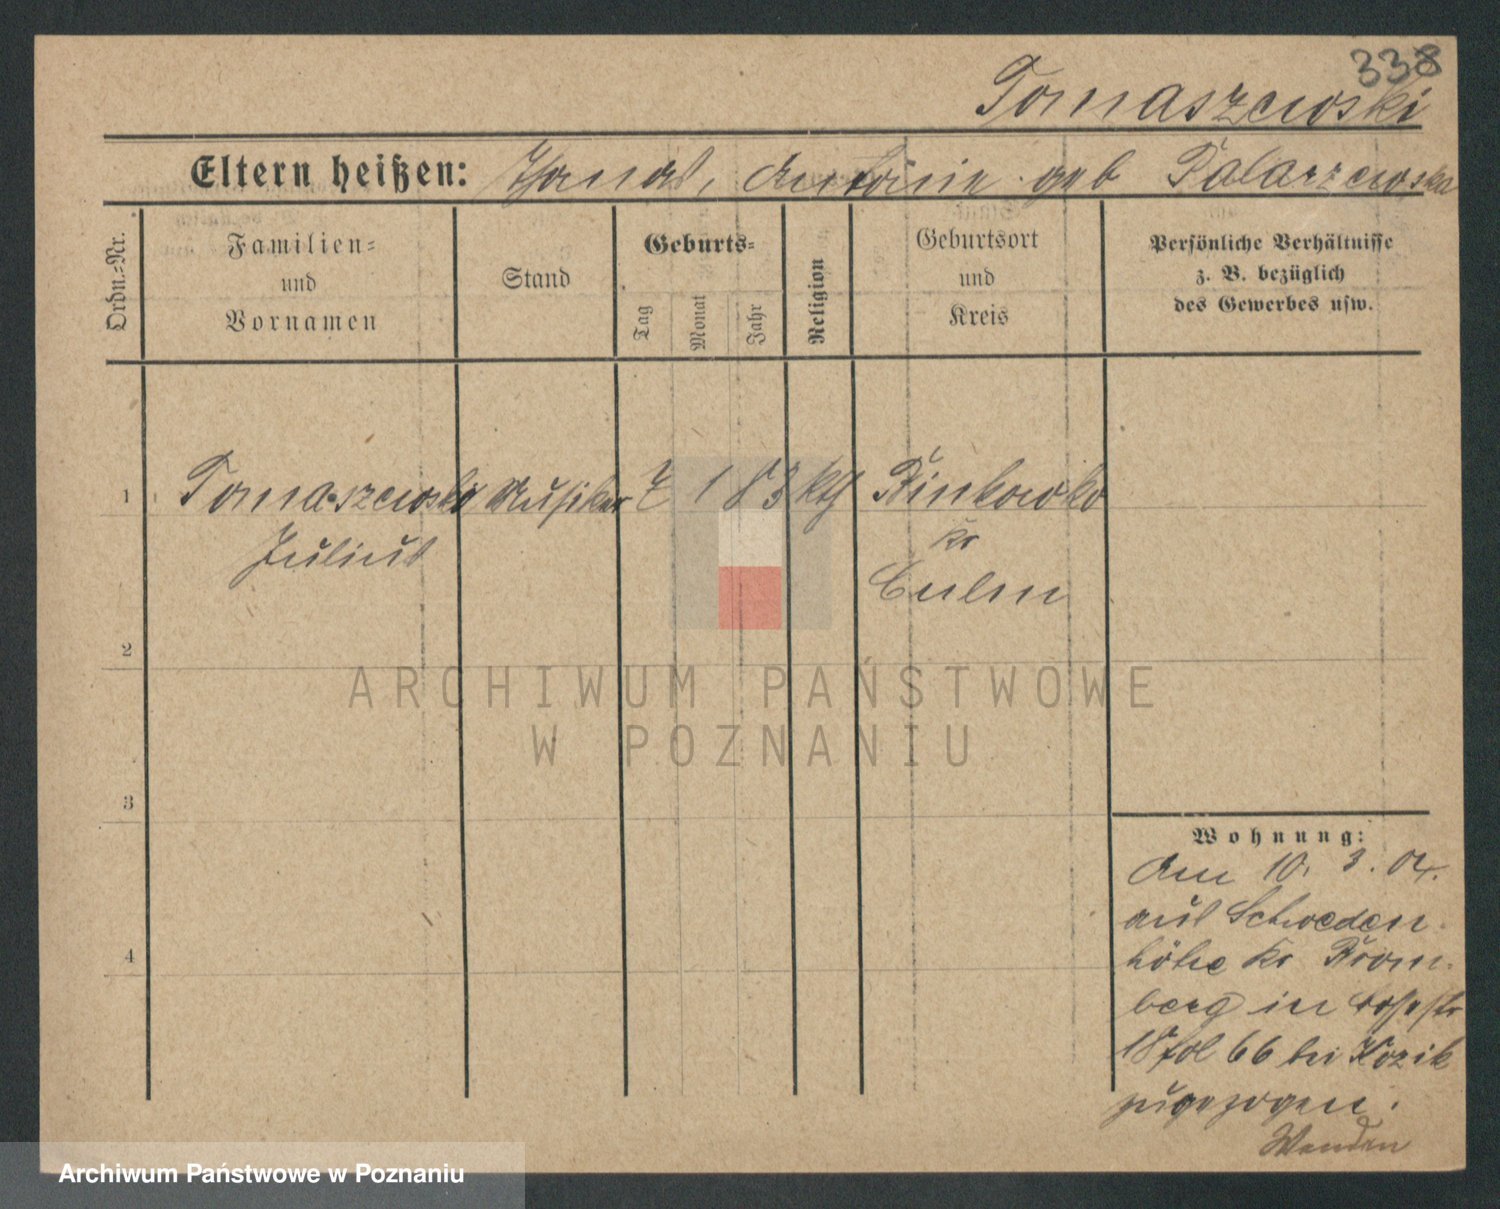 338
Tomaszewski
Eltern heißen: Thomas, Antonie geb Talarzewska
Ordn.=Nr.
Familien=
und
Vornamen
Stand
Geburts=
Tag
Monat
Jahr
Religion
Geburtsort
und
Kreis
Persönliche Verhältnisse
z. B. bezüglich
des Gewerbes usw.
1 Tomaszewski Musiker 7 1 83 kth
Julius
Kr
Culm
2
3
4
Wohnung:
Am 10. 3. 04.
aus Schweden
höhe Kr Brom.
berg in
18 fol 66 bei Kozik
zugezogen.
Wenden
ARCHIWUM PAŃSTWOWE
W POZNANIU
Archiwum Państwowe w Poznaniu